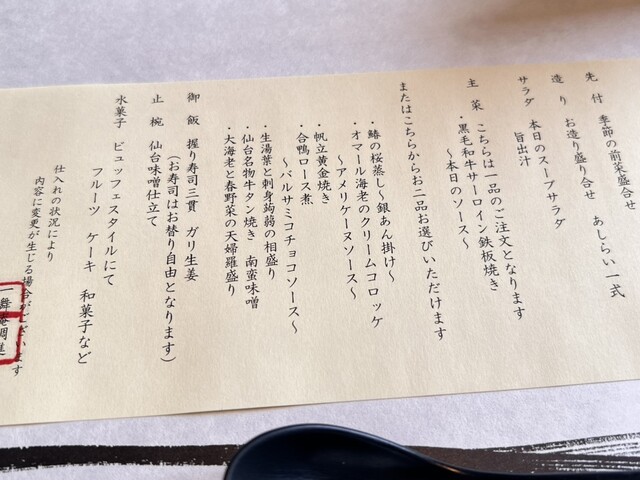 先付 季節の前菜盛合せ あしらい一式
造り お造り盛り合せ
サラダ 本日のスープサラダ
旨出汁
主菜 こちらは一品のご注文となります
・黒毛和牛サーロイン鉄板焼き
～本日のソース～
またはこちらからお二品お選びいただけます
・鰆の桜蒸し～銀あん掛け～
・オマール海老のクリームコロッケ
～アメリケーヌソース～
・帆立黄金焼き
・合鴨ロース煮
～バルサミコチョコソース～
・生湯葉と刺身蒟蒻の相盛り
・仙台名物牛タン焼き 南蛮味噌
・大海老と春野菜の天婦羅盛り
御飯 握り寿司三貫 ガリ生姜
(お寿司はお替り自由となります)
止椀 仙台味噌仕立て
水菓子 ビュッフェスタイルにて
フルーツ ケーキ 和菓子など
仕入れの状況により
内容に変更が生じる場合がございます